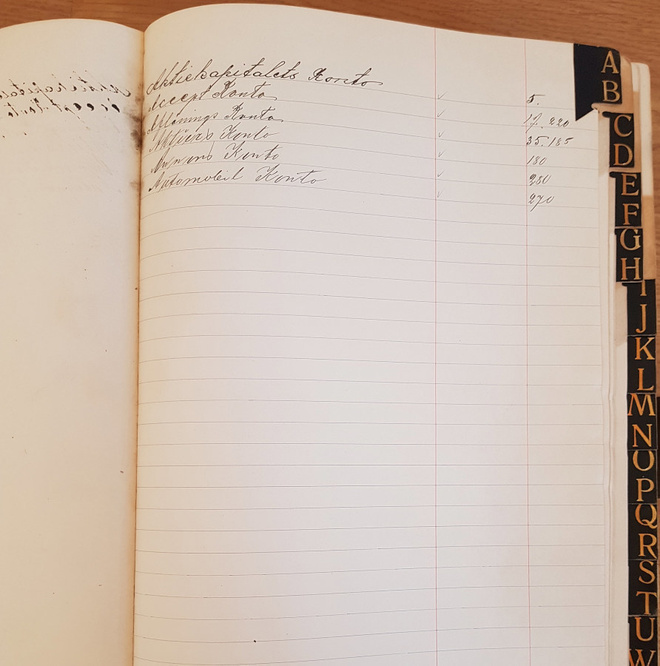 Aktiekapitalets Konto 5.
Accept Konto 17. 220
Aflönings Konto 35. 185
Konto 180
Annons Konto 250
Automobil Konto 270
A
B
C
D
E
F
G
H
I
J
K
L
M
N
O
P
Q
R
S
T
U
W